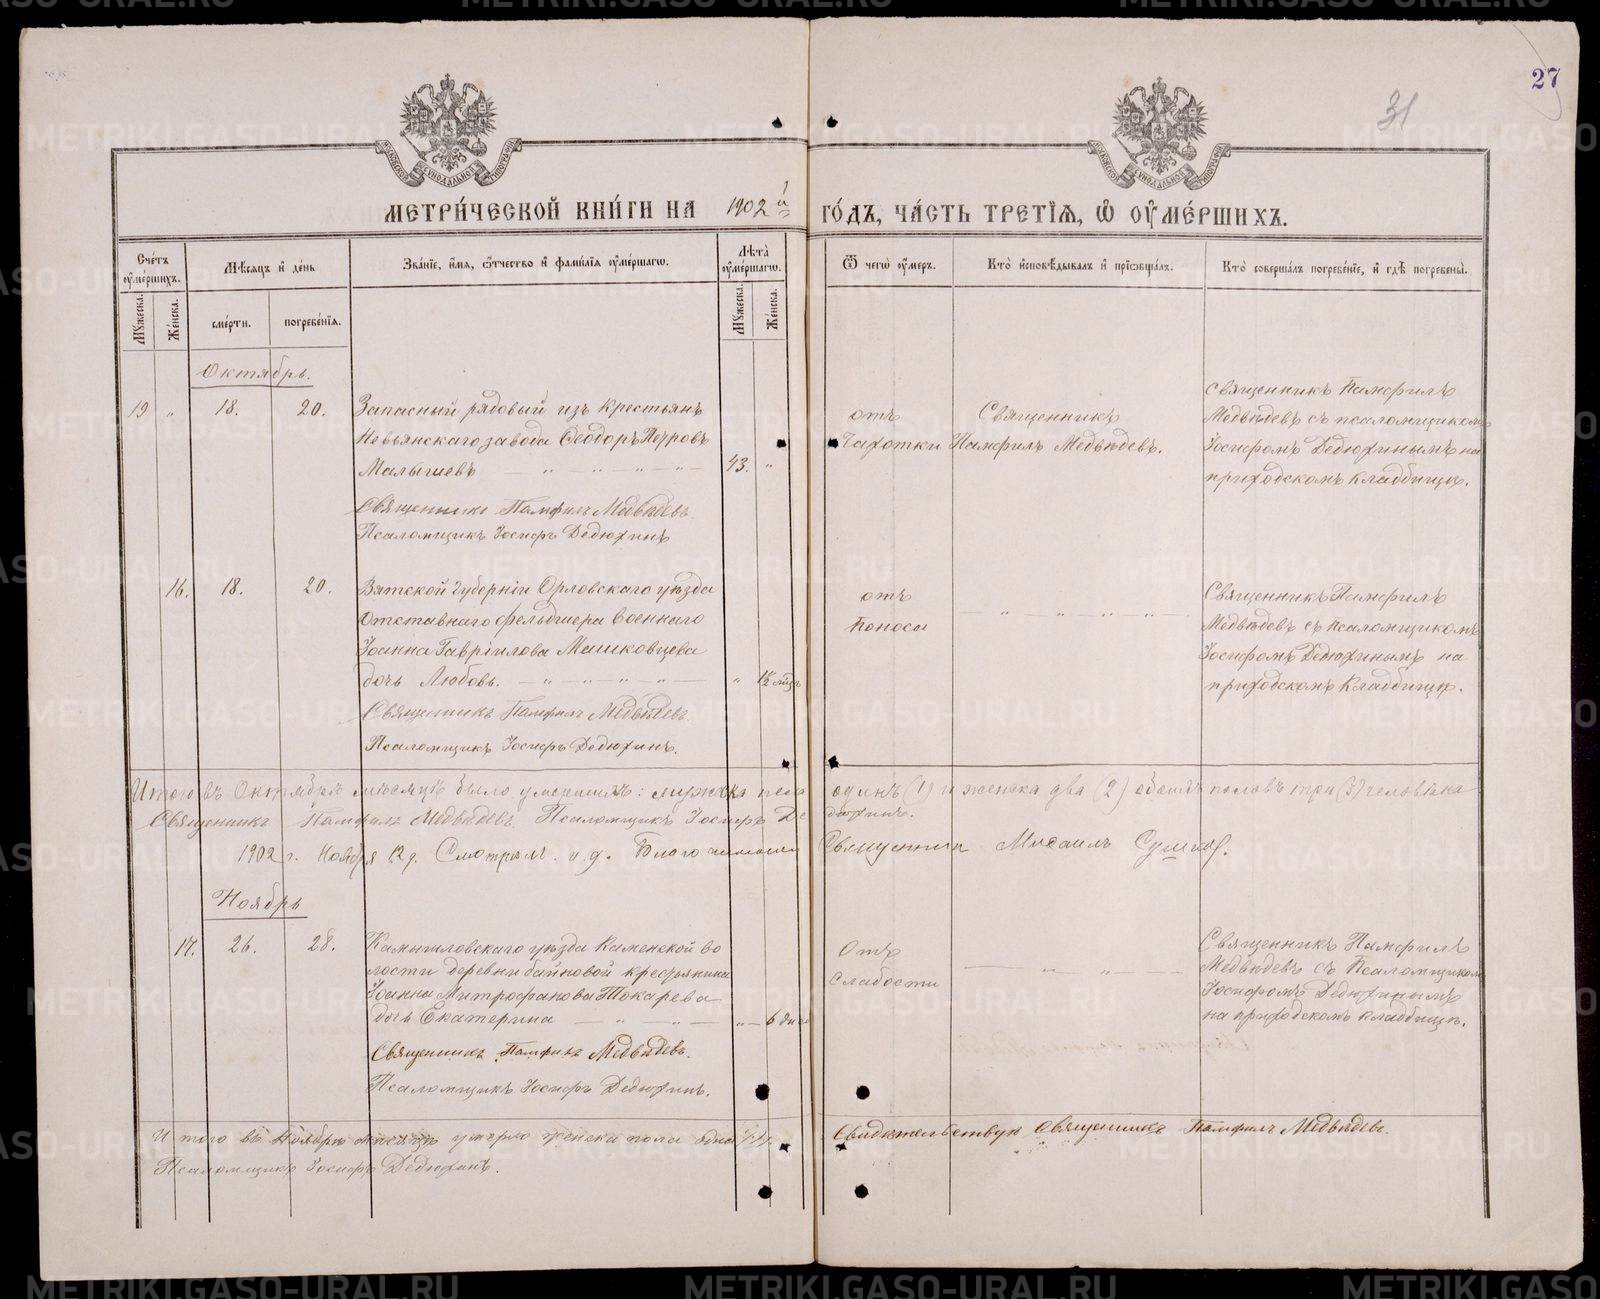 27
31
МОСКОВСКОЙ СѴНОДАЛЬНОЙ ТИПОГРАФІИ
МОСКОВСКОЙ СѴНОДАЛЬНОЙ ТИПОГРАФІИ
МЕТРИ́ЧЕСКОЙ КНИ́ГИ НА 1902 й
ГО́ДЪ, ЧА́СТЬ ТРЕТІѦ, Ѽ ОУ҆МЕ́РШИХЪ.
Сче́тъ ᲂу҆ме́ршихъ.
Мѣ́сѧцъ и҆ де́нь
Зва́ніе, и҆́мѧ, ѻ҆́тчество и҆ фами́лїѧ ᲂу҆ме́ршагѡ.
Лѣта̀ ᲂу҆ме́ршагѡ.
Ѿ чегѡ̀ ᲂу҆́меръ.
Кто̀ и҆сповѣ́дывалъ и҆ прїѡбща́лъ.
Кто̀ соверша́лъ погребе́нїе, и҆ гдѣ̀ погребены̀.
Мꙋ́жеска.
Же́нска.
сме́рти.
погребе́нїѧ.
Мꙋ́жеска.
Же́нска.
Октябрь.
19 „ 18. 20.
Запасный рядовый изъ крестьянъ
Невьянскаго завода Ѳеодоръ Петровъ
Малышевъ — „ — „ — „ — „ — 43. „
Священникъ Памфилъ Медвѣдевъ
Псаломщикъ Іосифъ Дедюхинъ
отъ
Чахотки
Священникъ
Памфилъ Медвѣдевъ.
Священникъ Памфилъ
Медвѣдевъ съ псаломщикомъ
Іосифомъ Дедюхинымъ на
приходскомъ кладбищѣ.
16. 18. 20.
Вятской губерніи Орловскаго уѣзда
Отставнаго фельдшера военнаго
Іоанна Гавріилова Машковцева
дочь Любовь. — „ — „ — „ — „ — „ 1½ мѣц
Священникъ Памфилъ Медвѣдевъ.
Псаломщикъ Іосифъ Дедюхинъ.
отъ
Поноса
— „ — „ — „ — „ —
Священникъ Памфилъ
Медвѣдевъ съ псаломщикомъ
Іосифомъ Дедюхинымъ на
приходскомъ кладбищѣ.
Итого въ Октябрѣ мѣсяцѣ было умершихъ: мужска пола одинъ (1) и женска два (2) обоихъ половъ три (3) человѣка
Священникъ Памфилъ Медвѣдевъ Псаломщикъ Іосифъ Дедюхинъ.
1902 г. Ноября 12 д. Смотрѣлъ. и. д. Благочиннаго Священникъ Михаилъ
Ноябрь
17. 26. 28.
Камышловскаго уѣзда Каменской во
лости деревни Байновой крестьянина
Іоанна Митрофанова Токарева
дочь Екатерина — „ — „ — „ — 6 дней
Священникъ Памфилъ Медвѣдевъ.
Псаломщикъ Іосифъ Дедюхинъ.
Отъ
Слабости
— „ — „ —
Священникъ Памфилъ
Медвѣдевъ съ Псаломщикомъ
Іосифомъ Дедюхинымъ
на приходскомъ кладбищѣ.
Итого въ Ноябрѣ мѣсяцѣ умерло женска пола одна (1). Свидѣтельствую Священникъ Памфилъ Медвѣдевъ.
Псаломщикъ Іосифъ Дедюхинъ.
METRIKI.GASO-URAL.RU